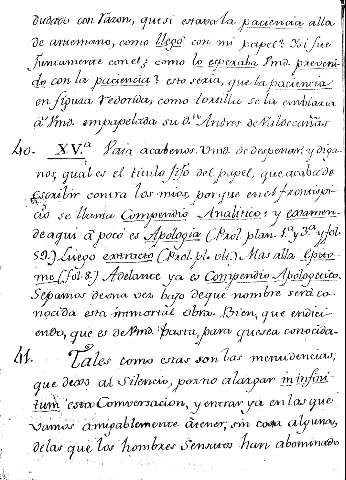 dudarlo con razon, que si estava la paciencia alla
de antemano, como llegó con mi papel? Y si fue
juntamente con el; como lo esperaba Vmd. preveni-
do con la paciencia? esto seria, que la paciencia
en figura redonda, como se la embiaria
à Vmd. empapelada su Dn. Andres de Valdecañas
40. XV.a Para acabemos. Vmd. de despenar, y diga-
nos, qual es el titulo fijo del papel, que acaba de
escribir contra los mios, porque en el frontispi-
cio se llama Compendio Analitico: y examen
de aqui à poco es Apologia (Prol. plan. 1.a y 3.a y fol.
59.) Luego extracto (Prol. pl. ult.) Mas alla Epito-
me (fol. 8.) Adelante ya es Compendio Apologetico.
Sepamos de una vez baxo de que nombre serà co-
nocida esta immortal obra. Bien, que en dici-
endo, que es de Vmd. basta, para que sea conocida.
41. Tales como estas son las menudencias,
que dexo al silencio, por no alargar in infini-
tum esta Comversacion, y entrar ya en las que
vamos amigablemente à tener, sin cosa alguna,
de las que los hombres sensatos han abominado